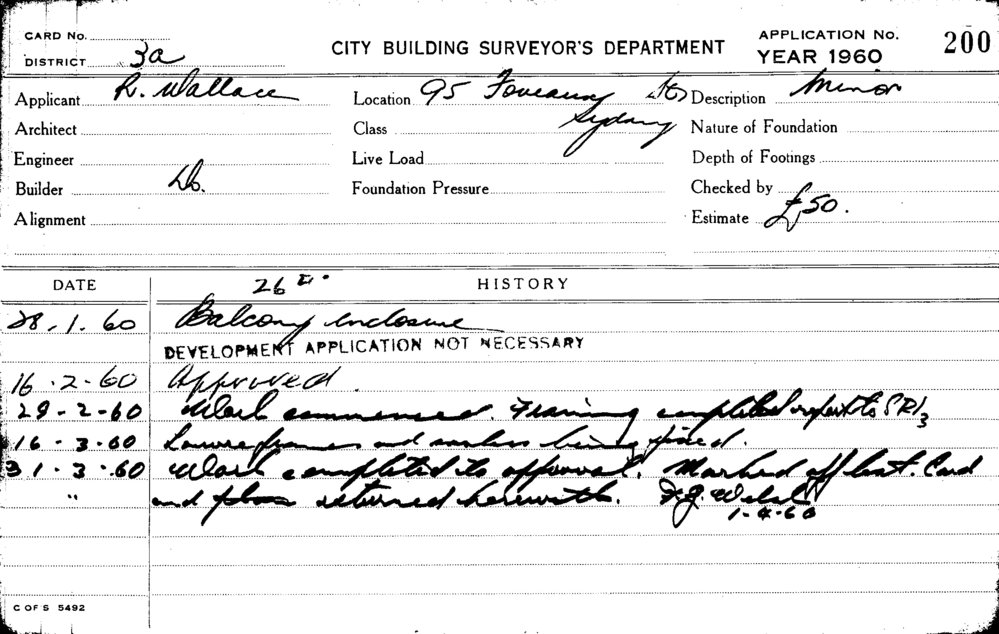 CARD No.
DISTRICT 3a
CITY BUILDING SURVEYOR'S DEPARTMENT
APPLICATION No. 200
YEAR 1960
Applicant R. Wallace Location 95 Foveaux St Description Minor
Architect Class Sydney Nature of Foundation
Engineer Live Load Depth of Footings
Builder Do. Foundation Pressure Checked by
Alignment Estimate £50.
DATE 26 HISTORY
28.1.60 Balcony enclosure
DEVELOPMENT APPLICATION NOT NECESSARY
16.2.60 Approved.
29-2-60 Work commenced. Framing completed report to
16-3-60 Louvre frames and being fixed.
31.3.60 Work completed to approval. Marked off list. Card
" and plan returned herewith.
1-4-60
C OF S 5492